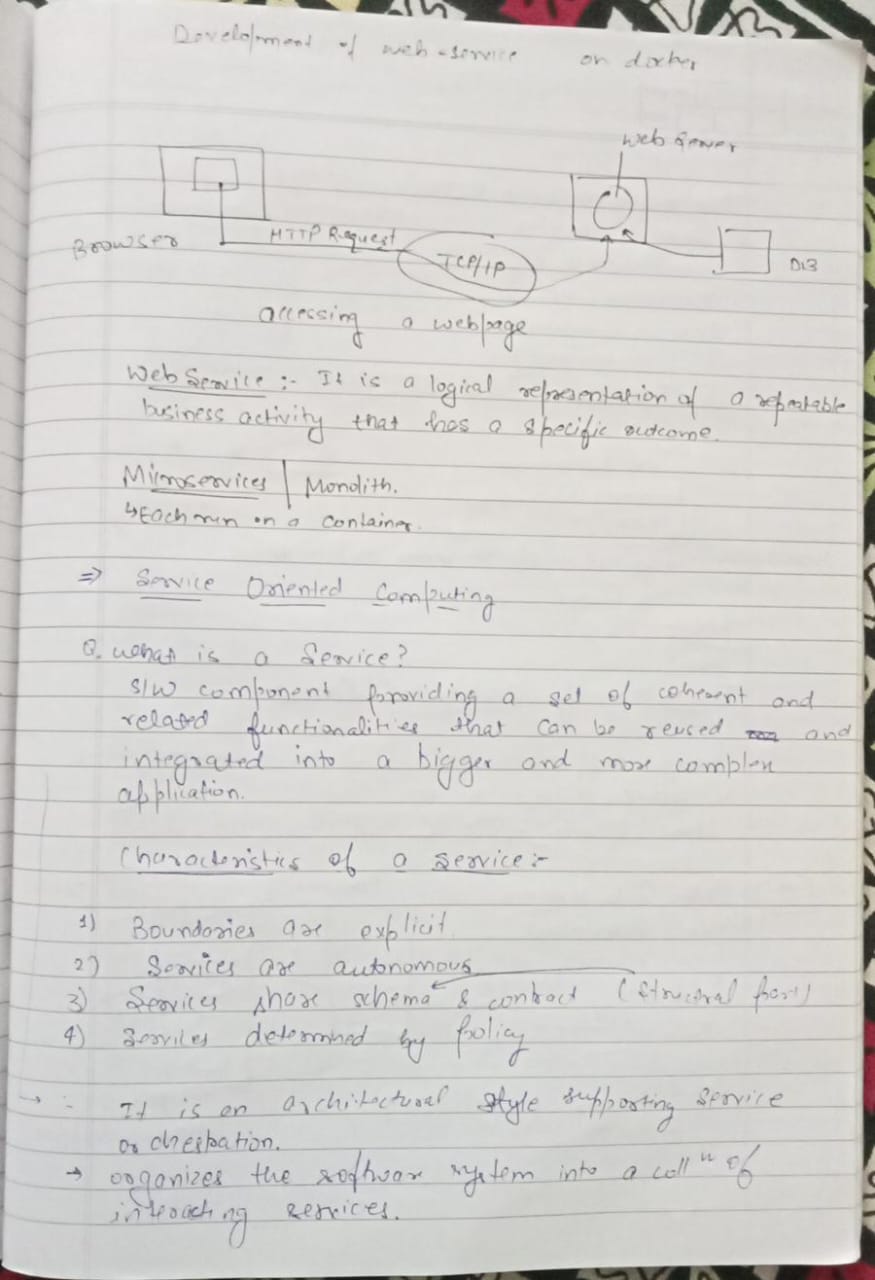 Development of web-service on docker
Web Server
Browser
HTTP Request
TCP/IP
DB
accessing a webpage
Web Service :- It is a logical representation of a repeatable
business activity that has a specific outcome.
Microservices | Monolith.
↳ Each run on a container.
⇒ Service Oriented Computing
Q. What is a Service?
S/W component providing a set of coherent and
related functionalities that can be reused and
integrated into a bigger and more complex
application.
Characteristics of a service :-
1) Boundaries are explicit
2) Services are autonomous
3) Services share schema & contract (Structural part)
4) Services determined by policy
→ :- It is an architectural style supporting service
orchestration.
→ organizes the software system into a collⁿ of
interacting services.